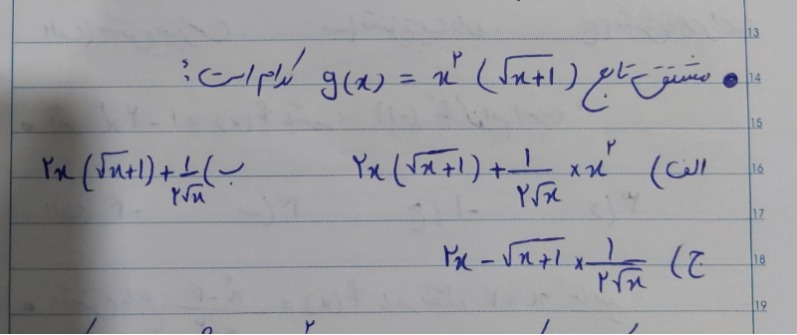 13
14 • مشتق تابع g(x) = x² (√x+1) کدام است؟
15
16 الف) ۲x (√x+1) + 1/۲√x × x² ب) ۲x (√x+1) + 1/۲√x
17
18 ج) ۲x - √x+1 × 1/۲√x
19